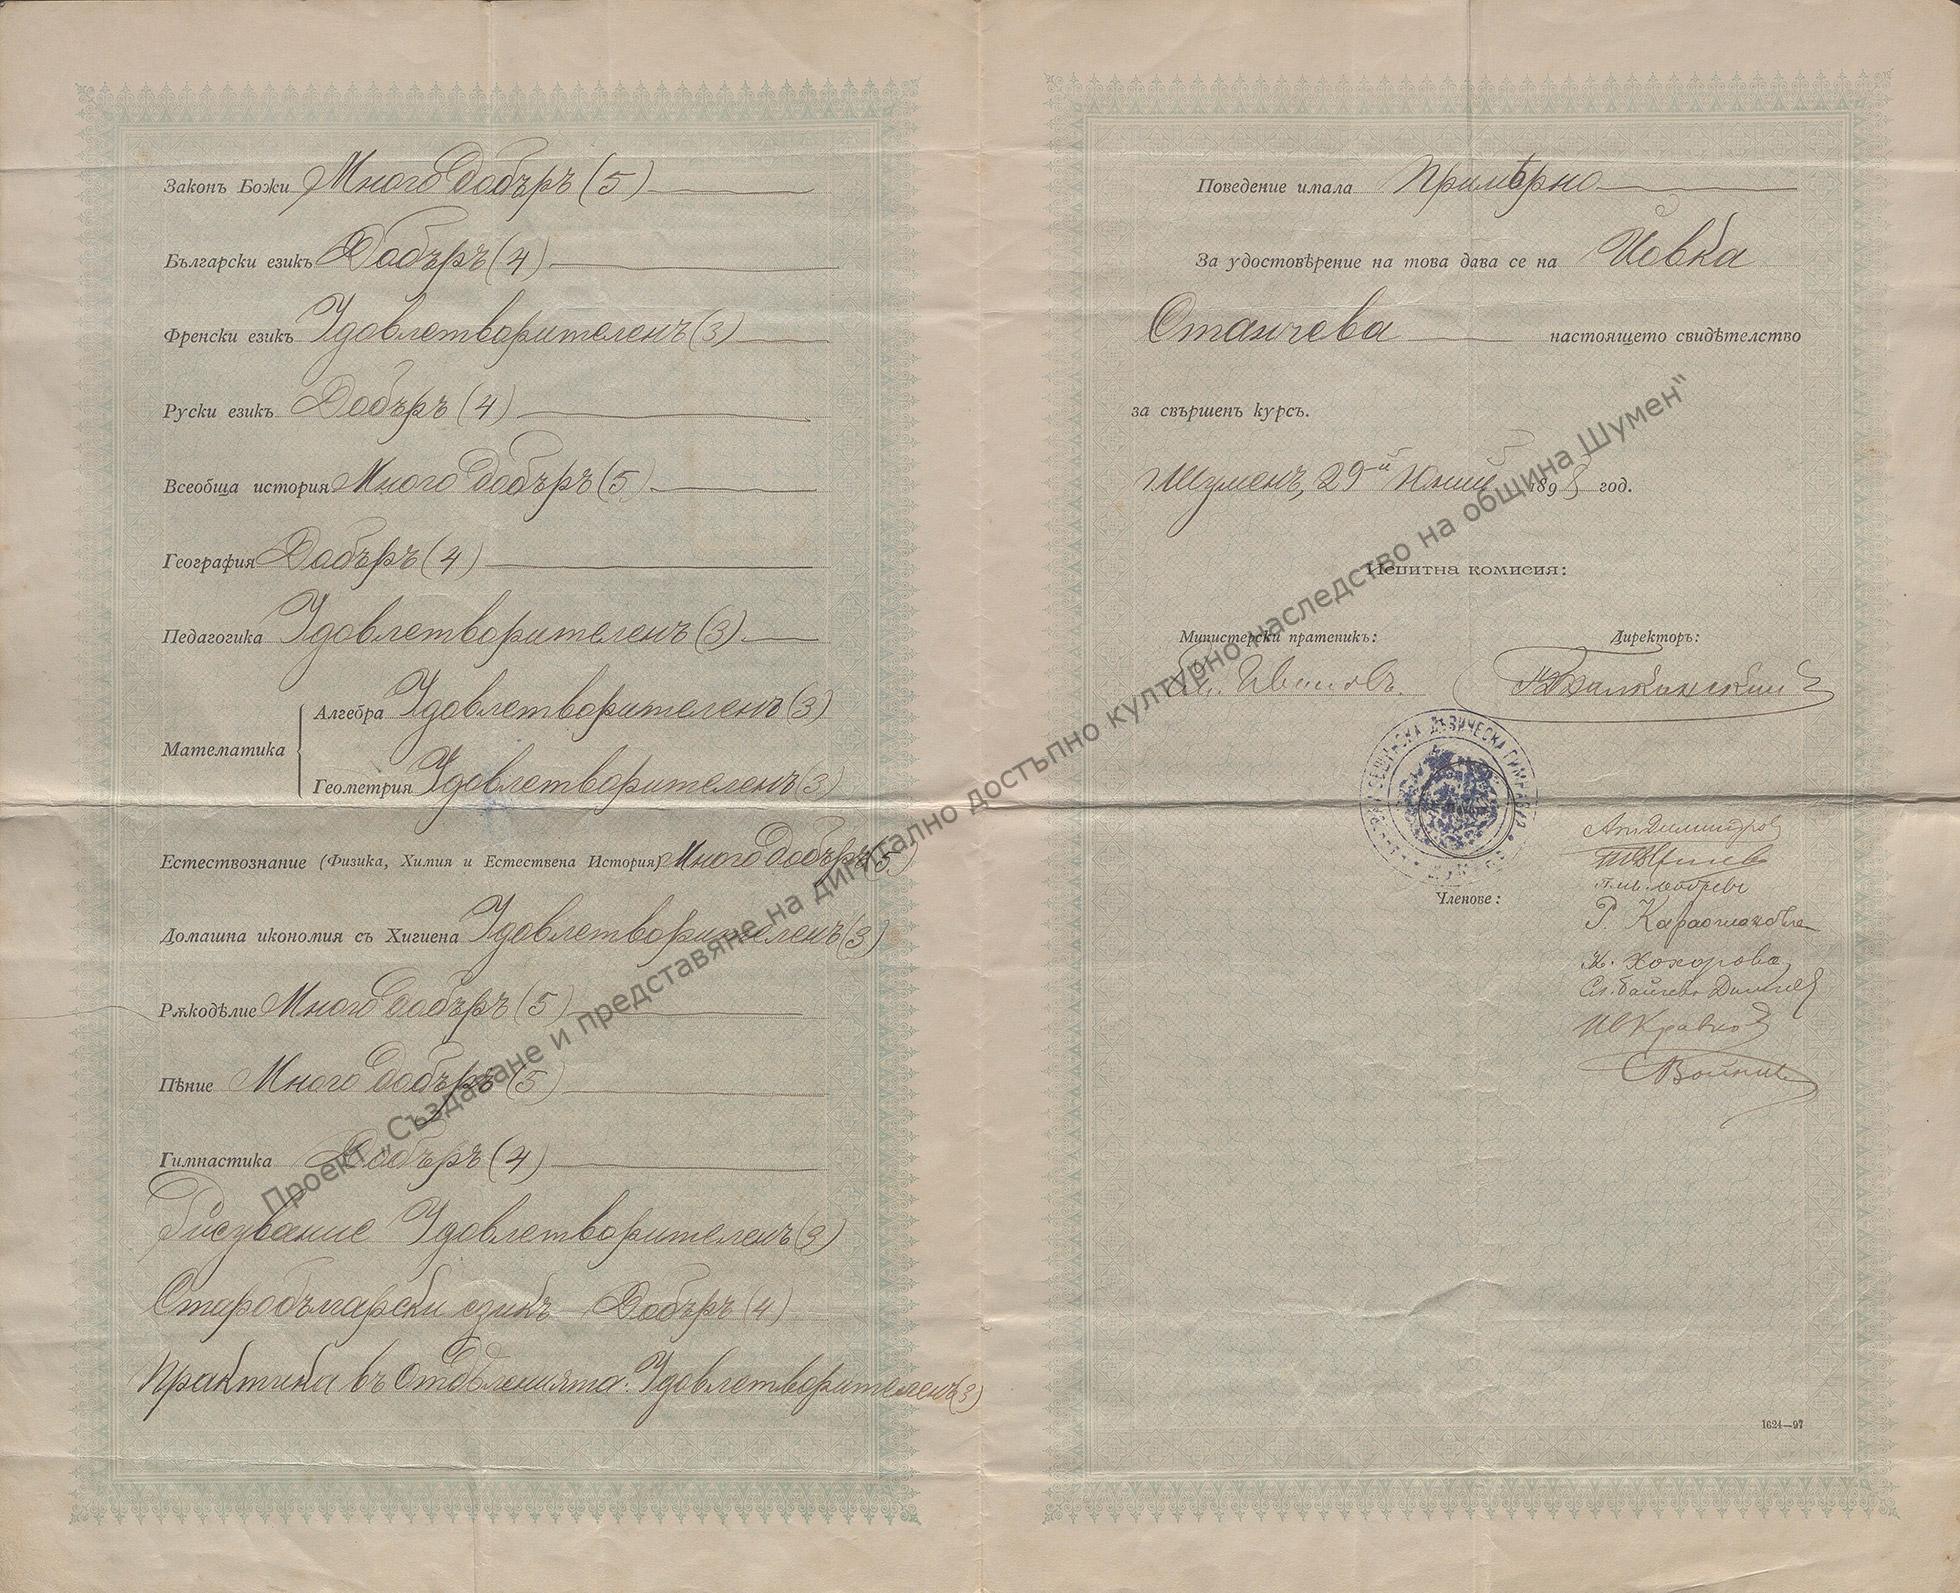 Законъ Божи Много добъръ (5)
Български езикъ Добъръ (4)
Френски езикъ Удовлетворителенъ (3)
Руски езикъ Добъръ (4)
Всеобща история Много добъръ (5)
География Добъръ (4)
Педагогика Удовлетворителенъ (3)
Математика
Алгебра Удовлетворителенъ (3)
Геометрия Удовлетворителенъ (3)
Естествознание (Физика, Химия и Естествена История) Много добъръ (5)
Домашна икономия съ Хигиена Удовлетворителенъ (3)
Рѫкодѣлие Много добъръ (5)
Пѣние Много добъръ (5)
Гимнастика Добъръ (4)
Рисувание Удовлетворителенъ (3)
Старобългарски езикъ Добъръ (4)
Практика въ Отдѣленията: Удовлетворителенъ (3)
Поведение имала Примѣрно
За удостовѣрение на това дава се на Йовка
Станчева настоящето свидѣтелство
за свършенъ курсъ.
Шуменъ, 29-й Юний 1898 год.
Испитна комисия:
Министерски пратеникъ: Директоръ:
Ивановъ. Балкански
ДѢВИЧЕСКА ГИМНАЗИЯ
Членове:
Р. Караошанова
Ив. Кравков
1624—97
Проект „Създаване и представяне на дигитално достъпно културно наследство на община Шумен"